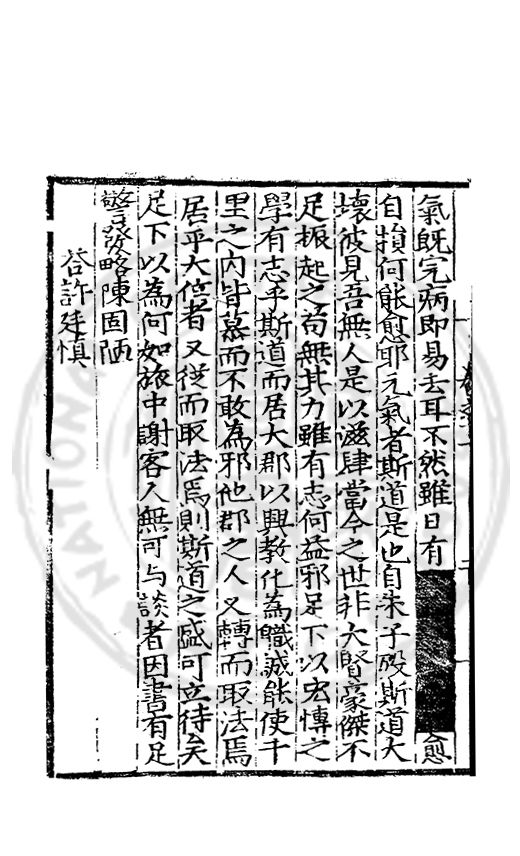 氣既完病即易去耳不然雖日有愈
自損何能愈耶元氣者斯道是也自朱子歿斯道大
壞彼見吾無人是以滋肆當今之世非大賢豪傑不
足振起之苟無其力雖有志何益邪足下以宏博之
學有志乎斯道而居大郡以興教化為職誠能使千
里之內皆慕而不敢為邪他郡之人又轉而取法焉
居乎大位者又從而取法焉則斯道之盛可立待矣
足下以為何如旅中謝客人無可与談者因書有足
警發略陳固陋
荅許廷慎
NATIONAL